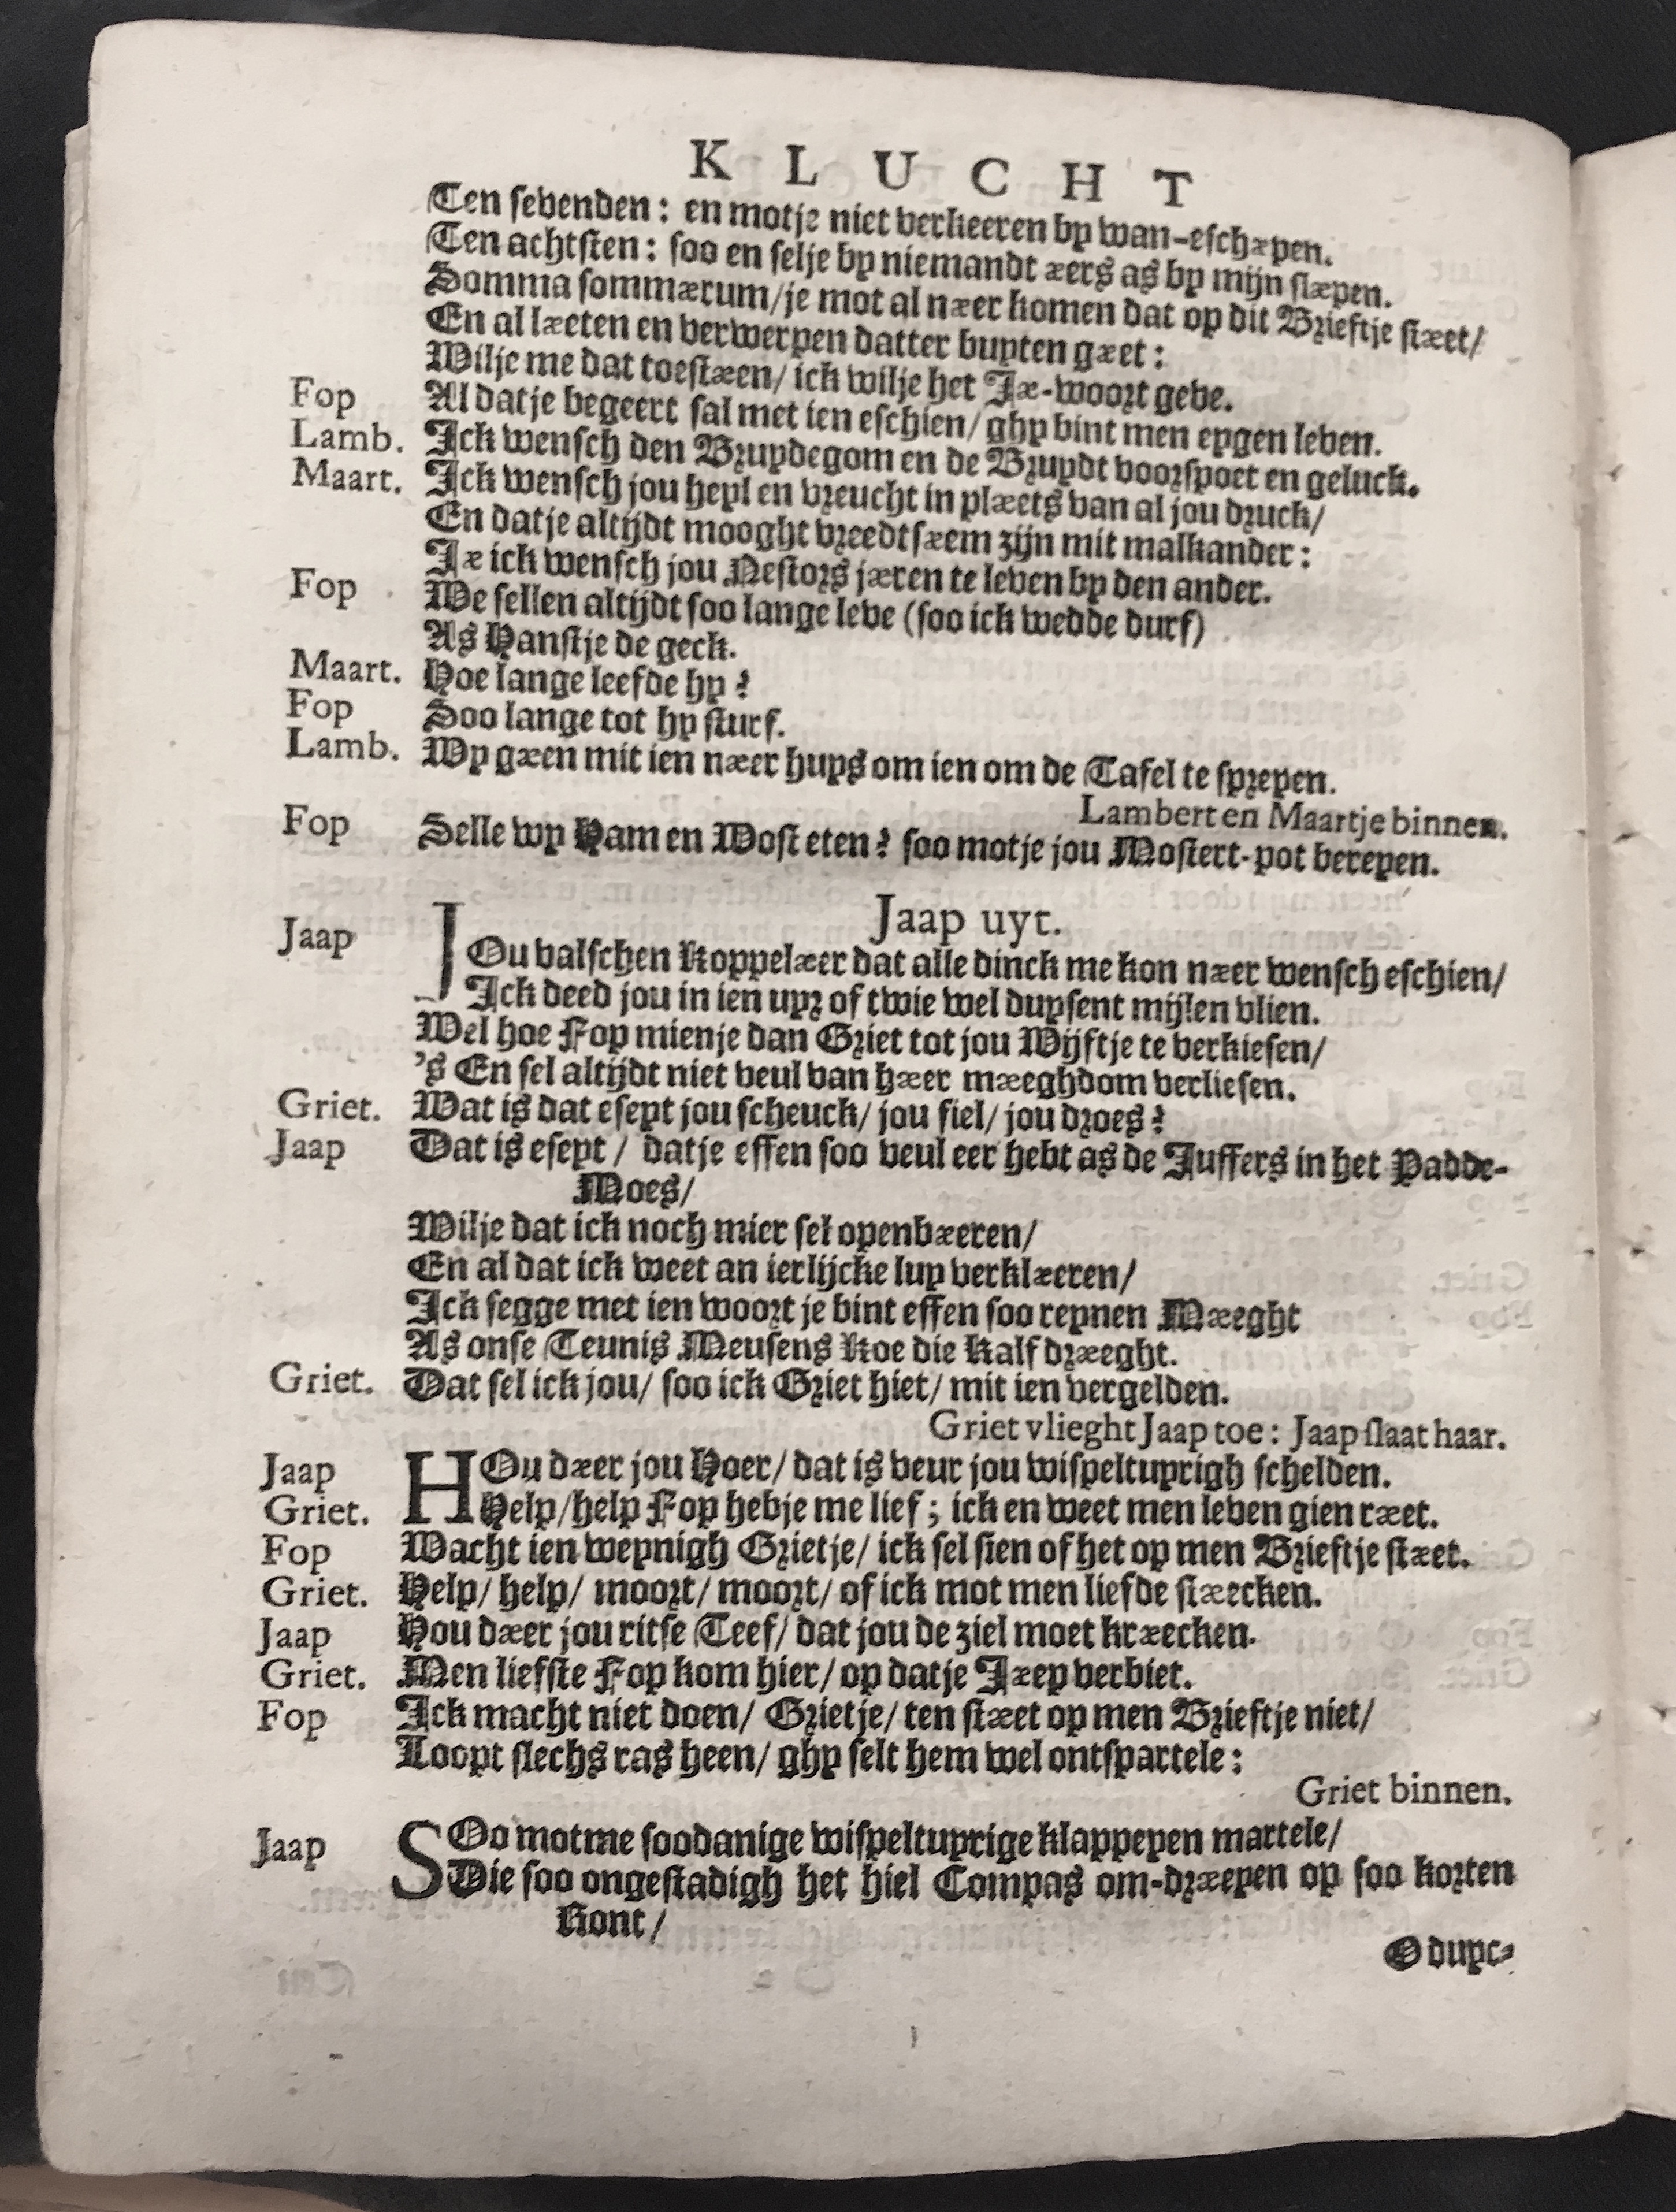 KLUCHT
Ten sevenden: en motje niet verkeeren by wan-eschæpen.
Ten achtsten: soo en selje by niemandt æers as by mijn slæpen.
Somma sommærum/je mot al næer komen dat op dit Brieftje stæet/
En al læeten en verwerpen datter buyten gæet:
Wilje me dat toestæen/ ick wilje het Jæ-woort geve.
Fop Al datje begeert sal met ien eschien/ ghy bint men eygen leven.
Lamb. Ick wensch den Bruydegom en de Bruydt voorspoet en geluck.
Maart. Ick wensch jou heyl en vreucht in plæets van al jou druck/
En datje altijdt mooght vreedtsæem zijn mit malkander:
Jæ ick wensch jou Nestors jæren te leven by den ander.
Fop We sellen altijdt soo lange leve (soo ick wedde durf)
As Hanstje de geck.
Maart. Hoe lange leefde hy?
Fop Soo lange tot hy sturf.
Lamb. Wy gæen mit ien næer huys om ien om de Tafel te spreyen.
Lambert en Maartje binnen.
Fop Selle wy Ham en Wost eten? soo motje jou Mostert-pot bereyen.
Jaap uyt.
Jaap JOu valschen Koppelæer dat alle dinck me kon næer wensch eschien/
Ick deed jou in ien uyr of twie wel duysent mijlen vlien.
Wel hoe Fop mienje dan Griet tot jou Wijftje te verkiesen/
's En sel altijdt niet veul van hæer mæeghdom verliesen.
Griet. Wat is dat eseyt jou scheuck/ jou fiel/ jou droes?
Jaap Dat is eseyt/ datje effen soo veul eer hebt as de Juffers in het Padde-
Moes/
Wilje dat ick noch mier sel openbæeren/
En al dat ick weet an ierlijcke luy verklæeren/
Ick segge met ien woort je bint effen soo reynen Mæeght
As onse Teunis Meusens Koe die Kalf dræeght.
Griet. Dat sel ick jou/ soo ick Griet hiet/ mit ien vergelden.
Griet vlieght Jaap toe: Jaap slaat haar.
Jaap HOu dæer jou Hoer/ dat is veur jou wispeltuyrigh schelden.
Griet. Help/help Fop hebje me lief; ick en weet men leven gien ræet.
Fop Wacht ien weynigh Grietje/ ick sel sien of het op men Brieftje stæet.
Griet. Help/ help/ moort/ moort/ of ick mot men liefde stæecken.
Jaap Hou dæer jou ritse Teef/ dat jou de ziel moet kræecken.
Griet. Men liefste Fop kom hier/ op datje Jæep verbiet.
Fop Ick macht niet doen/ Grietje/ ten stæet op men Brieftje niet/
Loopt slechs ras heen/ ghy selt hem wel ontspartele:
Griet binnen.
Jaap SOo motme soodanige wispeltuyrige klappeyen martele/
Die soo ongestadigh het hiel Compas om-dræeyen op soo korten
Stont/
O duyc-